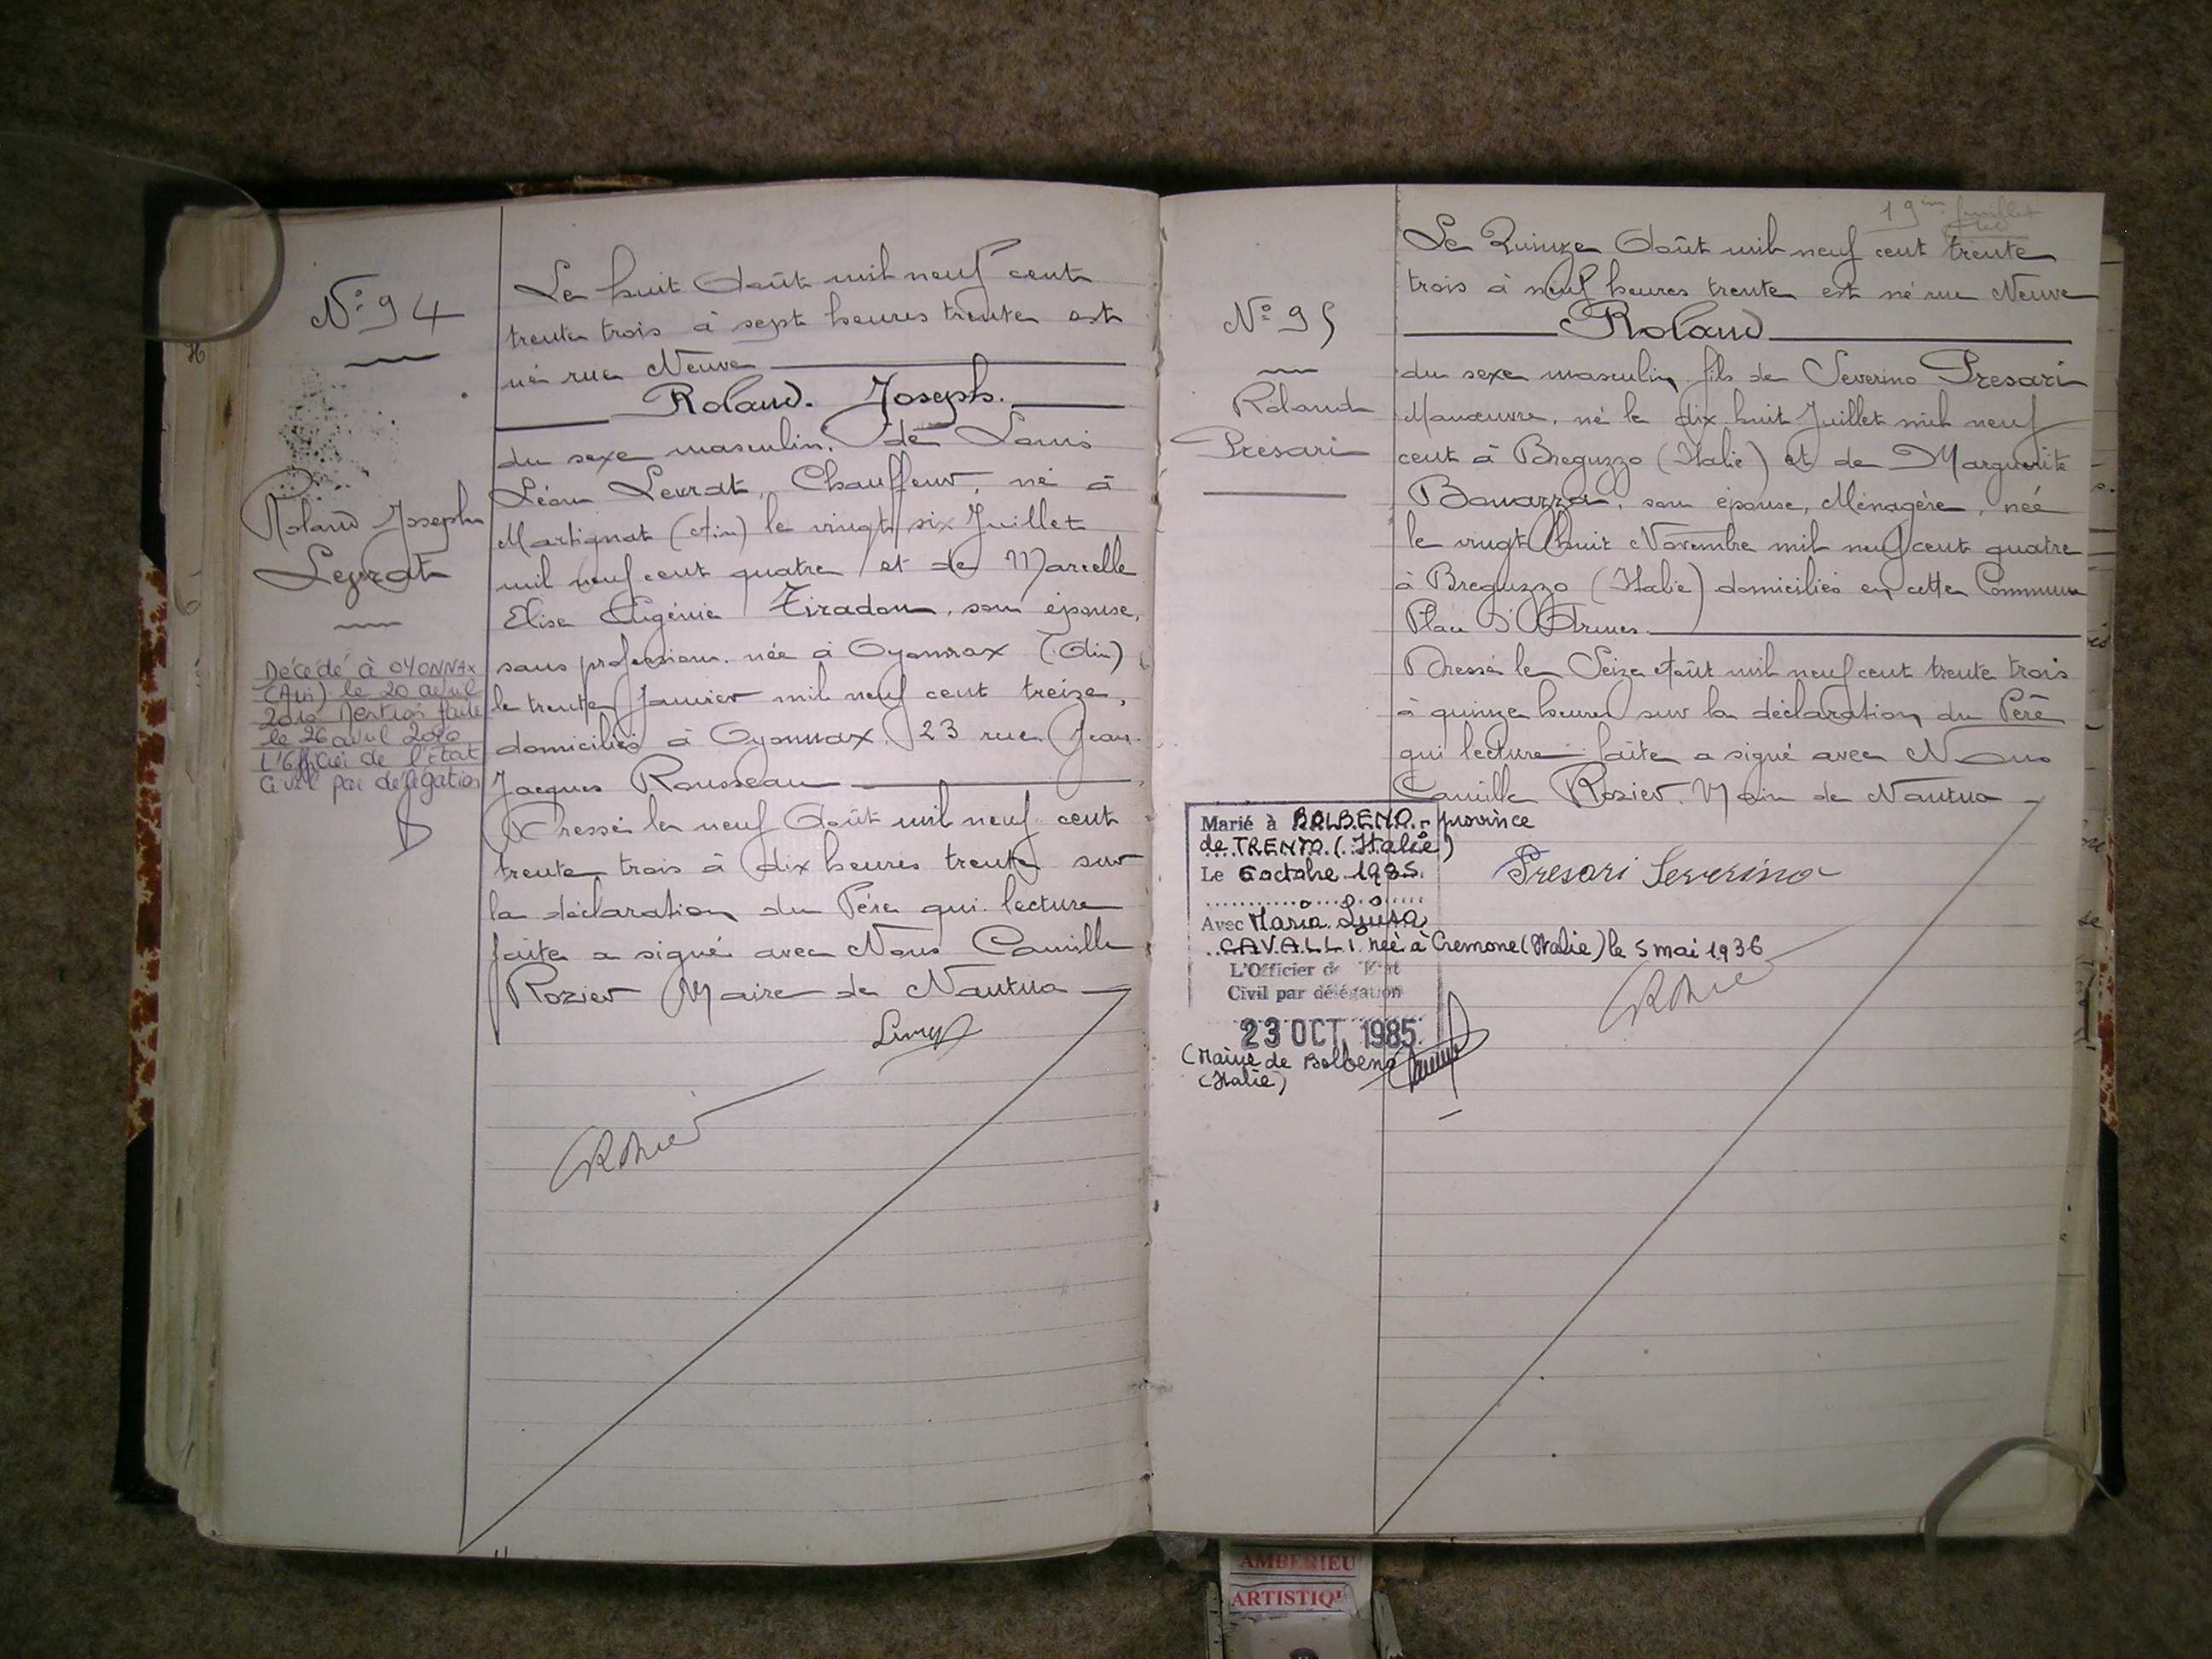 N° 94
Roland Joseph
Levrat
Décédé à OYONNAX
(Ain) le 20 avril
2010 Mention faite
le 26 avril 2010
L'Officier de l'état
Civil par délégation
Le huit Août mil neuf cent
trente trois à sept heures trente est
né rue Neuve
Roland. Joseph.
du sexe masculin, de Louis
Léon Levrat, Chauffeur, né à
Martignat (Ain) le vingt six Juillet
mil neuf cent quatre et de Marcelle
Elise Eugénie Tiradon, son épouse,
sans profession. née à Oyonnax (Ain)
le trente Janvier mil neuf cent treize,
domiciliés à Oyonnax, 23 rue Jean
Jacques Rousseau
Dressé le neuf Août mil neuf cent
trente trois à dix heures trente sur
la déclaration du Père qui lecture
faite a signé avec Nous Camille
Rozier Maire de Nantua
19ème feuillet
N° 95
Roland
Presari
Le Quinze Août mil neuf cent trente
trois à neuf heures trente est né rue Neuve
Roland
du sexe masculin, fils de Severino Presari
Manœuvre, né le dix huit Juillet mil neuf
cent à Breguzzo (Italie) et de Marguerite
Bonazza, son épouse, Ménagère, née
le vingt huit Novembre mil neuf cent quatre
à Breguzzo (Italie) domiciliés en cette Commune
Place d'Armes.
Dressé le Seize Août mil neuf cent trente trois
à quinze heures sur la déclaration du Père
qui lecture faite a signé avec Nous
Camille Rozier. Maire de Nantua
Presari Severino
Marié à BOLBENO - province
de TRENTO (Italie)
Le 6 octobre 1985
Avec Maria Luisa
CAVALLI née à Cremone (Italie) le 5 mai 1936
L'Officier de l'Etat
Civil par délégation
23 OCT. 1985
(Mairie de Bolbeno
(Italie)
AMBERIEU
ARTISTIQU